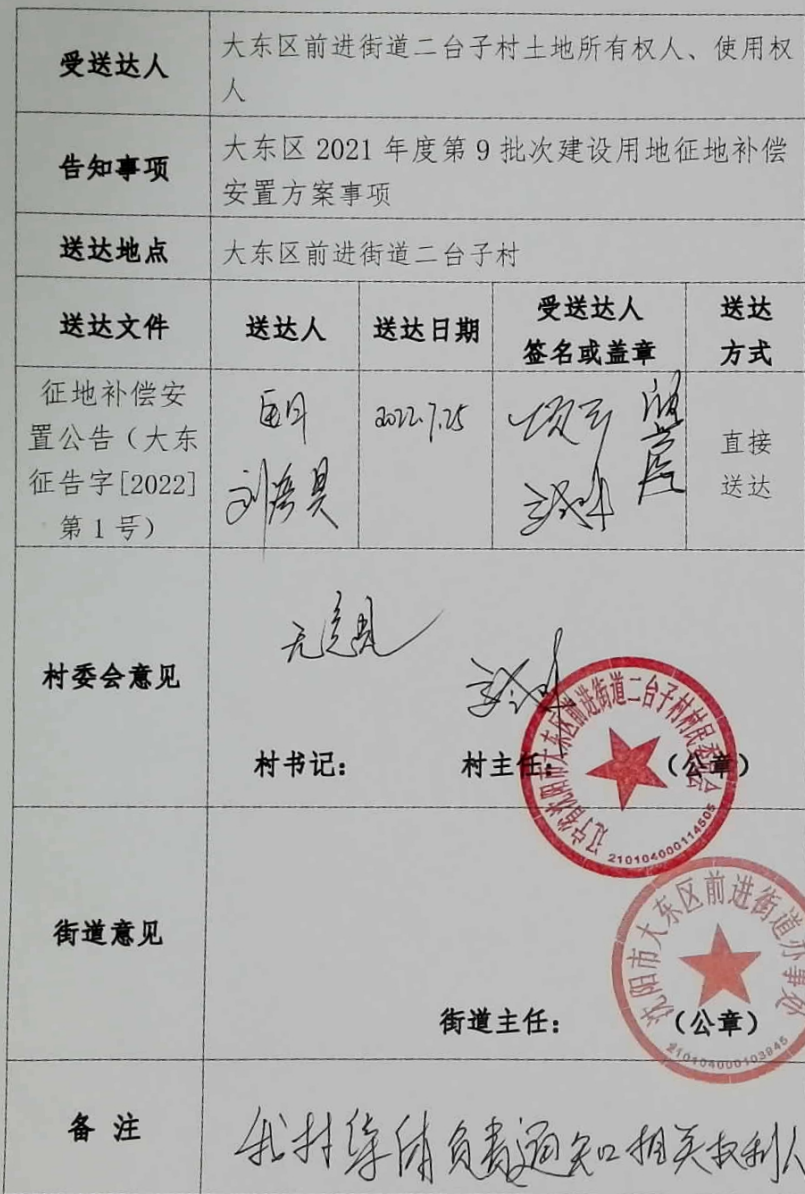 受送达人
大东区前进街道二台子村土地所有权人、使用权
人
告知事项
大东区 2021 年度第 9 批次建设用地征地补偿
安置方案事项
送达地点
大东区前进街道二台子村
送达文件
送达人
送达日期
受送达人
签名或盖章
送达
方式
征地补偿安
置公告（大东
征告字[2022]
第 1 号）
2022.7.25
直接
送达
村委会意见
无意见
村书记：
村主任：
（公章）
辽宁省沈阳市大东区前进街道二台子村村民委员会
210104000114505
街道意见
街道主任：
（公章）
沈阳市大东区前进街道办事处
210104000103845
备 注
我村集体负责通知相关权利人